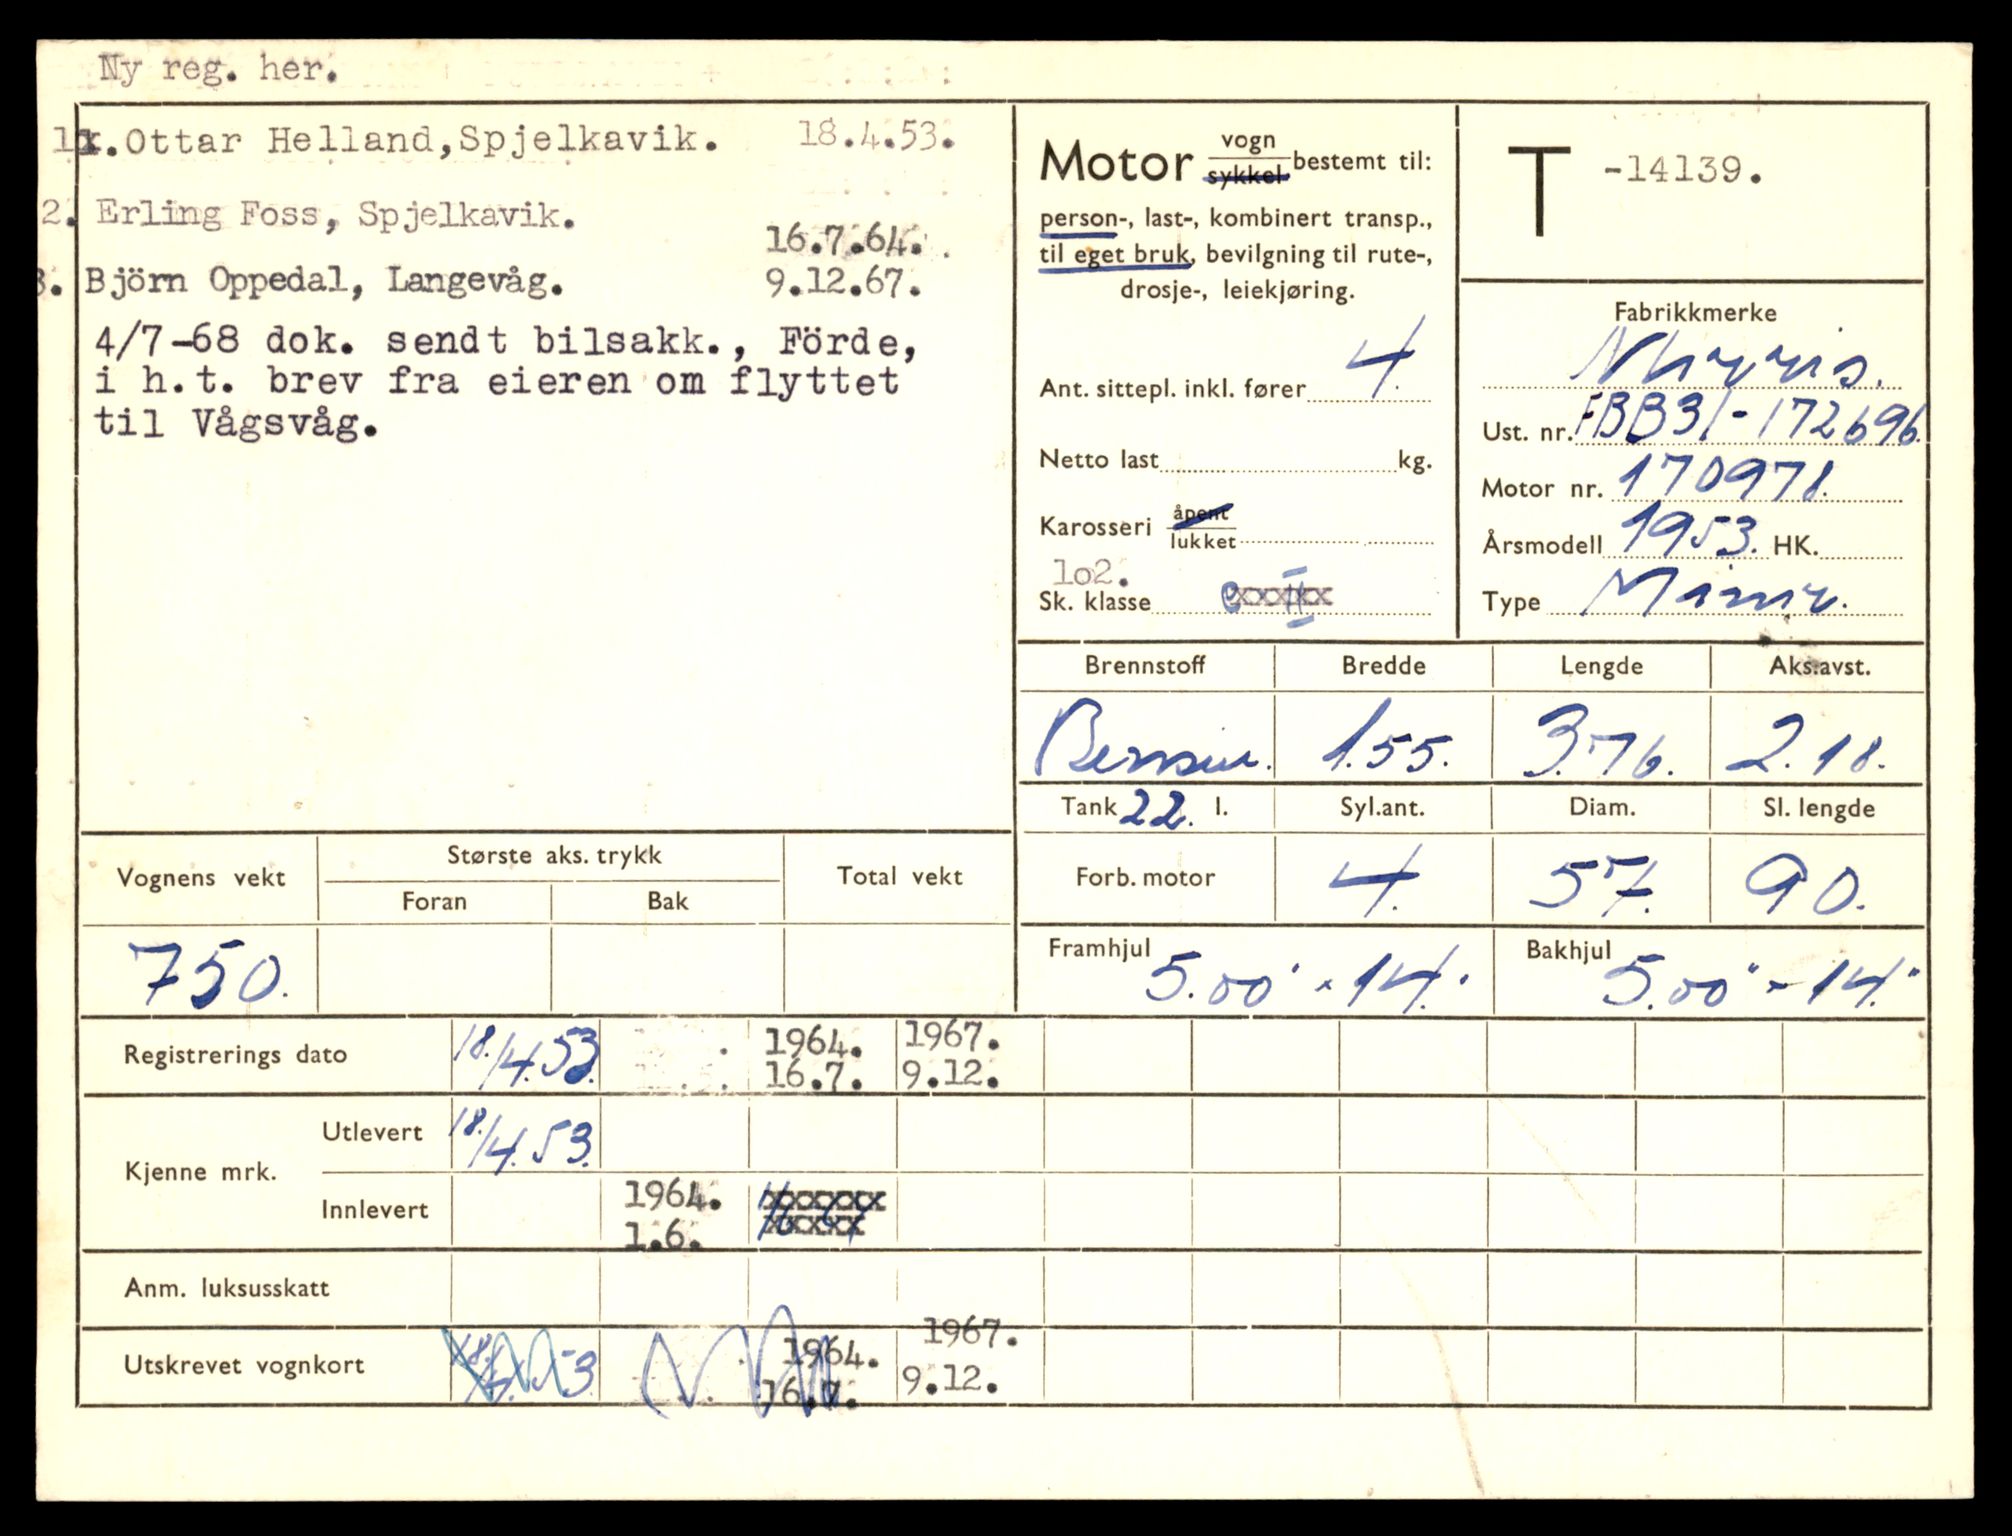 Ny reg. her.
1. Ottar Helland, Spjelkavik. 18.4.53.
2. Erling Foss, Spjelkavik.
16.7.64.
3. Björn Oppedal, Langevåg. 9.12.67.
4/7-68 dok. sendt bilsakk., Förde,
i h.t. brev fra eieren om flyttet
til Vågsvåg.
Motor vogn sykkel bestemt til:
person-, last-, kombinert transp.,
til eget bruk, bevilgning til rute-,
drosje-, leiekjøring.
Ant. sittepl. inkl. fører 4.
Netto last kg.
Karosseri åpent lukket
lo2.
Sk. klasse
T -14139.
Fabrikkmerke
Ust. nr. FBB31-172696.
Motor nr. 170978.
Årsmodell 1953. HK.
Type Minor.
Brennstoff Bredde Lengde Aks.avst.
Bensin. 1.55. 3.76. 2.18.
Tank 22. l. Syl.ant. Diam. Sl. lengde
Forb. motor 4. 57. 90.
Framhjul 5.00" x 14." Bakhjul 5.00" x 14."
Vognens vekt Største aks. trykk Total vekt
Foran Bak
750.
Registrerings dato 18./4.53. 1964. 16.7. 1967. 9.12.
Kjenne mrk. Utlevert 18./4.53.
Innlevert 1964. 1.6.
Anm. luksusskatt
Utskrevet vognkort 1964. 16.7. 1967. 9.12.